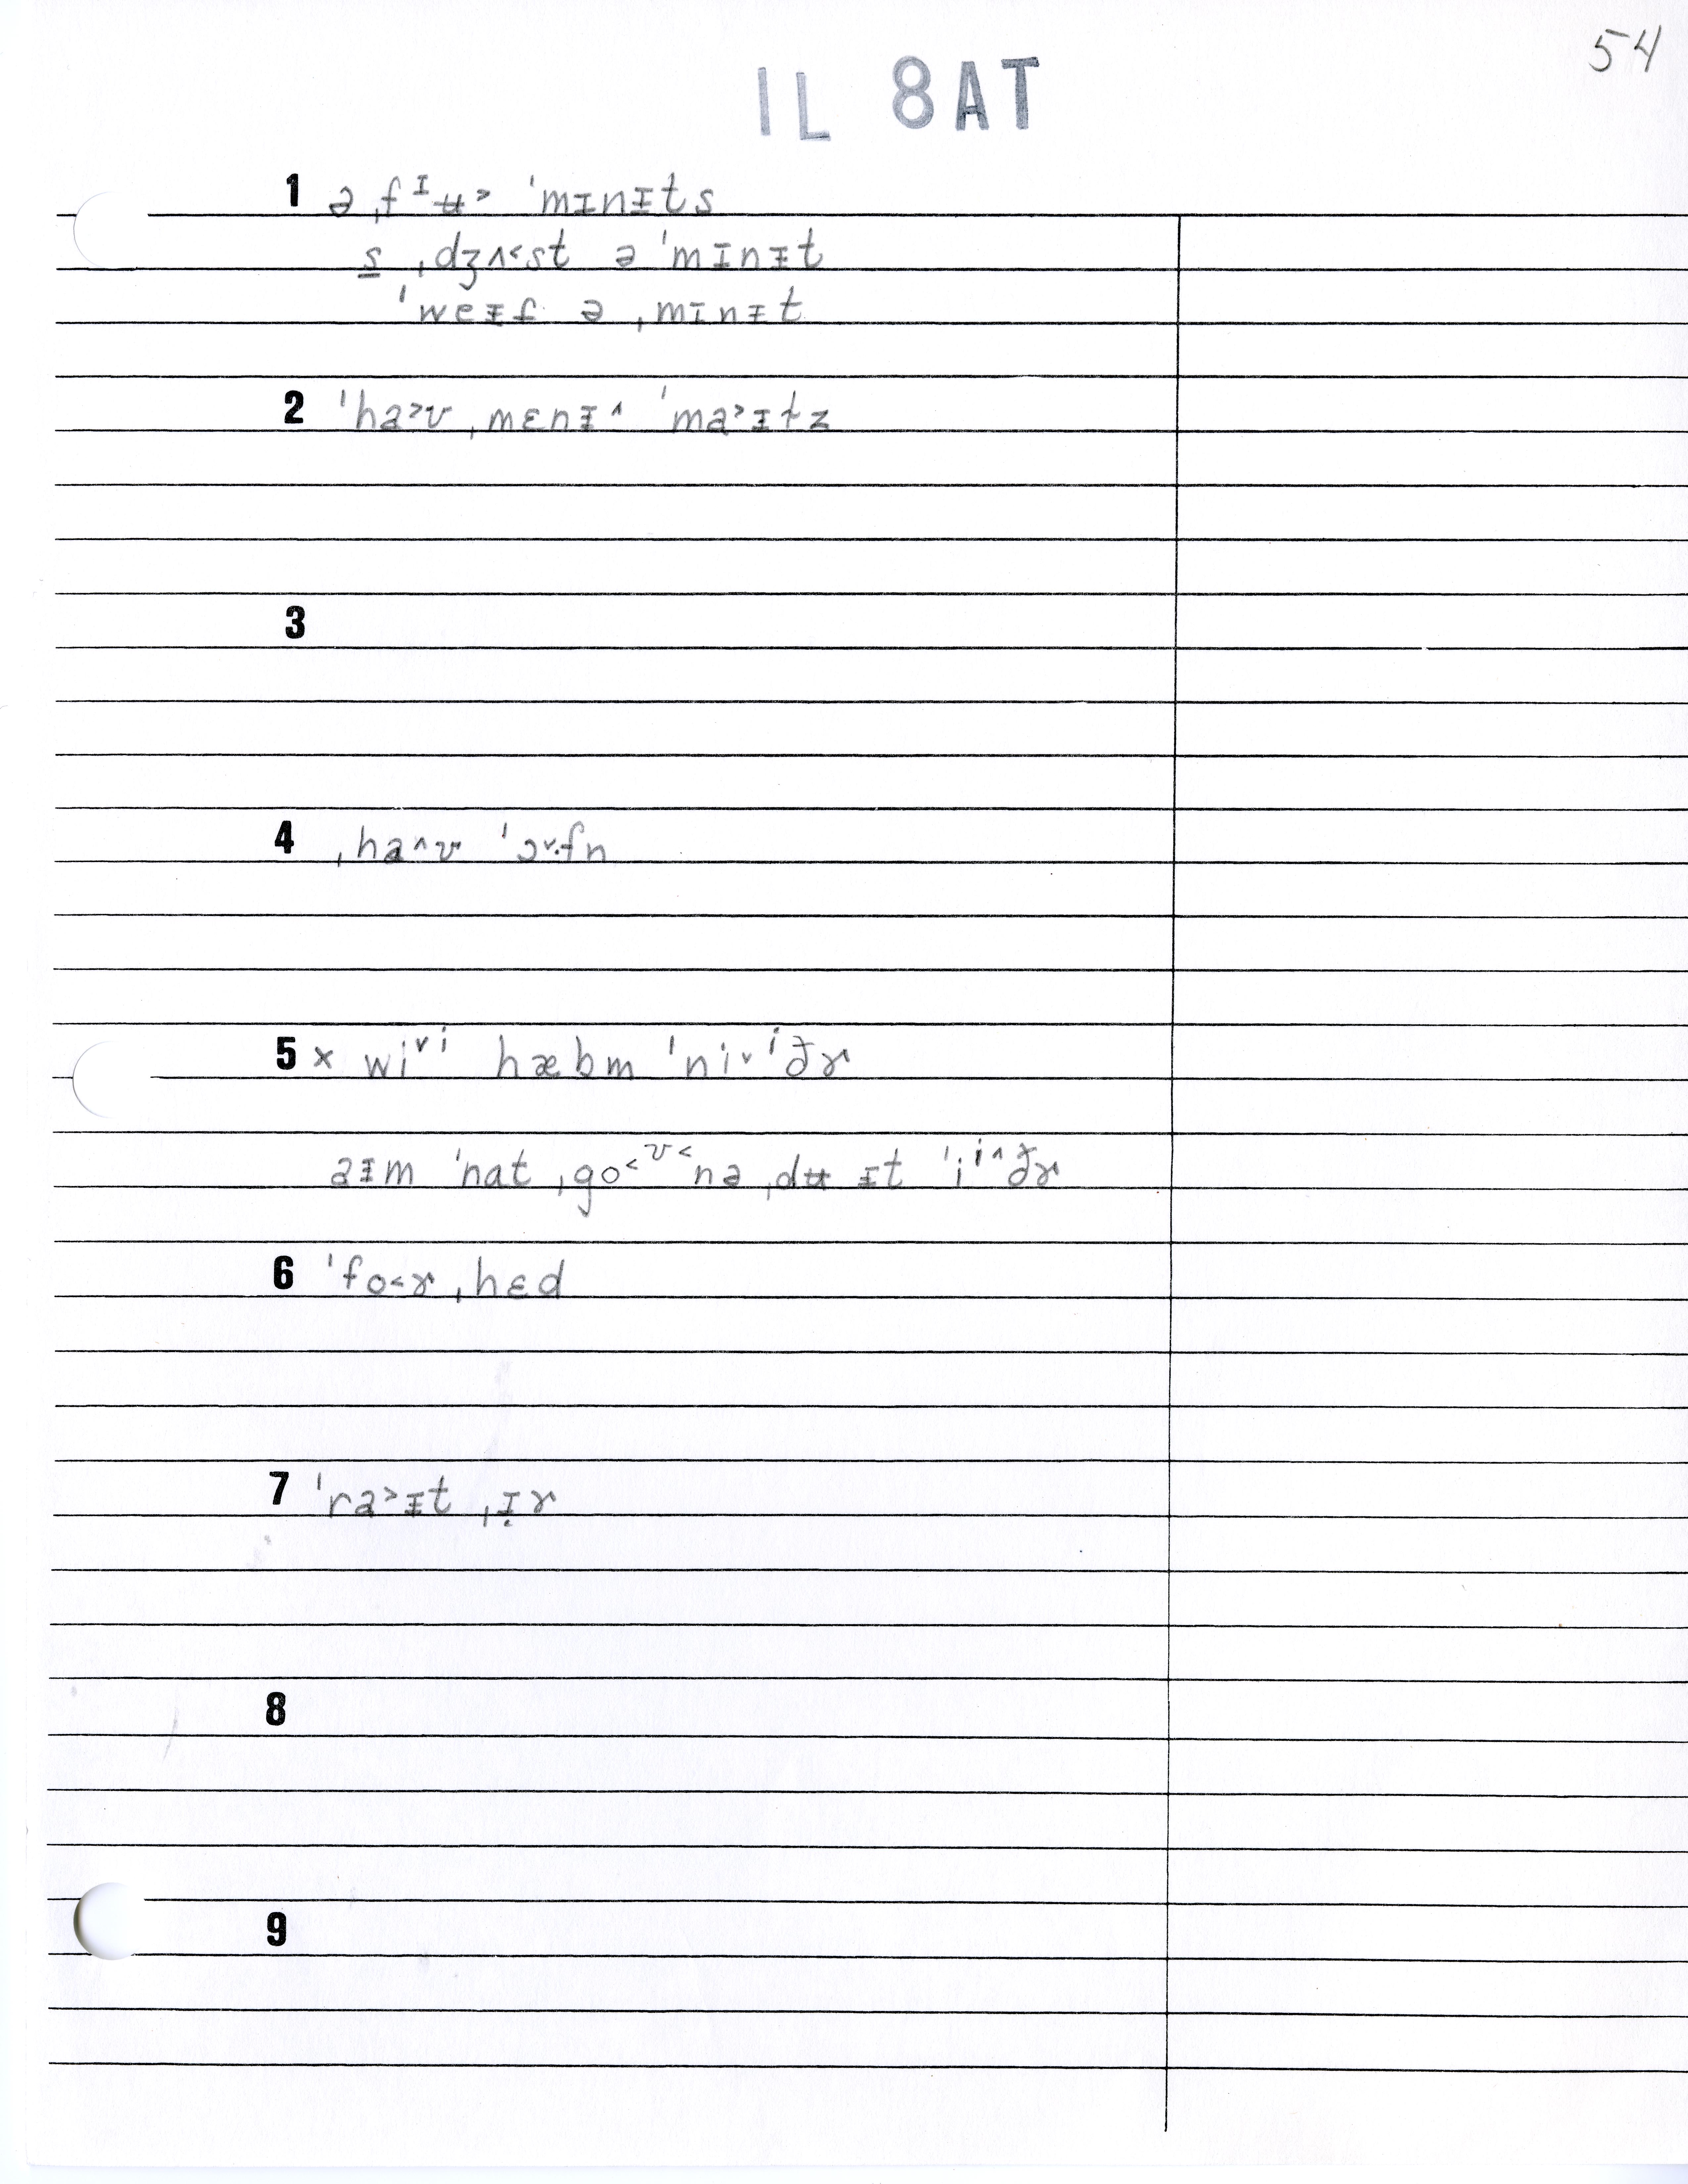 54
IL 8AT
1 ə ˌfᶦʉ˃ ˈmɪnɪ̵ts
s̲ ˌdʒʌ˂st ə ˈmɪnɪ̵t
ˈweɪ̵t̬ ə ˌmɪnɪ̵t
2 ˈha˃ʊ ˌmɛnɪ̵˄ ˈma˃ɪ̵ɫz
3
4 ˌha˄ʊ ˈɔ˅·fn
5 x wi˅ⁱ hæbm ˈni˅ⁱð̵ɚ
aɪ̵m ˈnat ˌgo˂ᶷ˂nə ˌdʉ ɪ̵t ˈiⁱ˄ð̵ɚ
6 ˈfo˂ɚ ˌhɛd
7 ˈra˃ɪ̵t ˌɪ̣ɚ
8
9